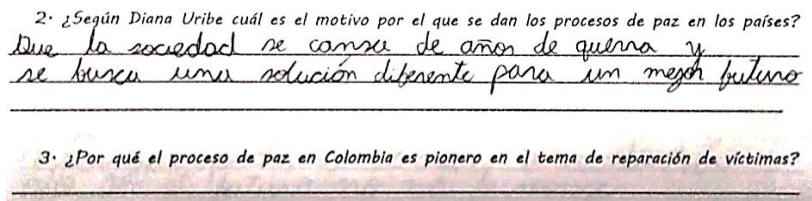 2. ¿Según Diana Uribe cuál es el motivo por el que se dan los procesos de paz en los países?
Que la sociedad se cansa de años de guerra y
se busca una solución diferente para un mejor futuro
3. ¿Por qué el proceso de paz en Colombia es pionero en el tema de reparación de víctimas?